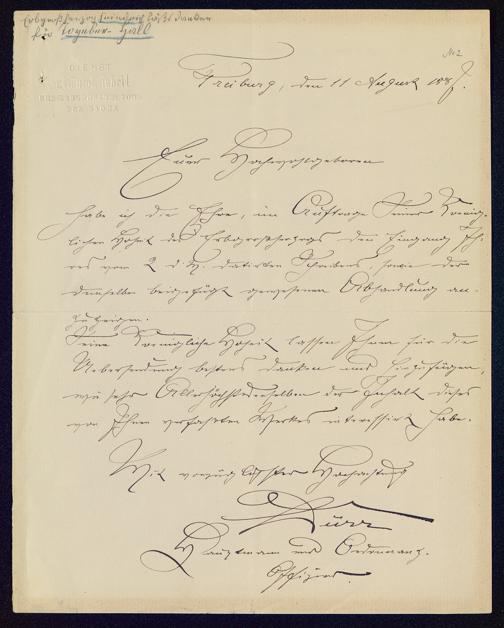 Erbgroßherzog Friedrich läßt danken
für
DIENST
Freiburg, den 11 August 188
Euer Hochwohlgeboren
habe ich die Ehre, im Auftrage Seiner König-
lichen Hoheit des Erbgroßherzogs den Eingang Ih-
res vom 2 d. M. datirten Schreibens sowie der
demselben beigefügt gewesenen Abhandlung an-
zuzeigen.
Seine Königliche Hoheit lassen Ihnen für die
Uebersendung bestens danken und hinzufügen,
wie sehr Allerhöchstdenselben der Inhalt dieses
von Ihnen verfaßten Werkes interessirt habe.
Mit vorzüglichster Hochachtung
Hauptmann und Ordonnanz-
Offizier.